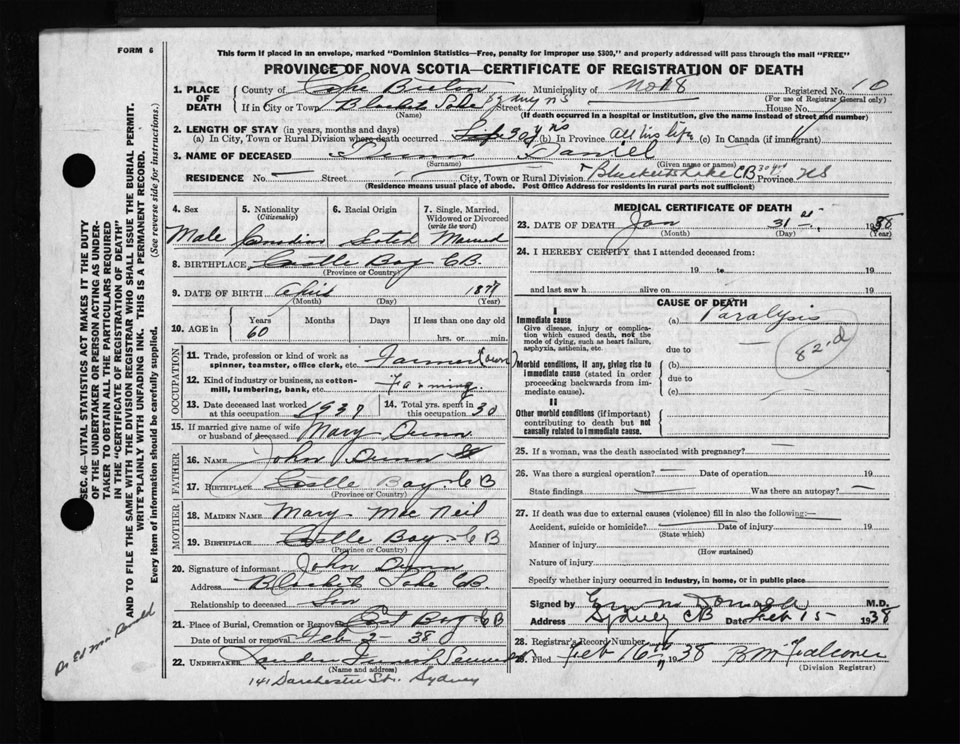 FORM 6
This form if placed in an envelope, marked "Dominion Statistics—Free, penalty for improper use $300," and properly addressed will pass through the mail "FREE"
PROVINCE OF NOVA SCOTIA—CERTIFICATE OF REGISTRATION OF DEATH
1. PLACE OF DEATH County of Cape Breton Municipality of No 8 Registered No. 10
(For use of Registrar General only)
If in City or Town Sydney NS Street House No.
(Name) (If death occurred in a hospital or institution, give the name instead of street and number)
2. LENGTH OF STAY (in years, months and days)
(a) In City, Town or Rural Division where death occurred 30 yrs (b) In Province All his life (c) In Canada (if immigrant)
3. NAME OF DECEASED Dunn Daniel
(Surname) (Given name or names)
RESIDENCE No. — Street City, Town or Rural Division CB Province NS
(Residence means usual place of abode. Post Office Address for residents in rural parts not sufficient)
4. Sex 5. Nationality (Citizenship) 6. Racial Origin 7. Single, Married, Widowed or Divorced (write the word)
Male Canadian Scotch Married
8. BIRTHPLACE Castle Bay CB.
(Province or Country)
9. DATE OF BIRTH April 1877
(Month) (Day) (Year)
10. AGE in Years Months Days If less than one day old
60 hrs. or min.
OCCUPATION
11. Trade, profession or kind of work as spinner, teamster, office clerk, etc. Farmer (own)
12. Kind of industry or business, as cotton-mill, lumbering, bank, etc. Farming.
13. Date deceased last worked at this occupation 1937 14. Total yrs. spent in this occupation 30
15. If married give name of wife or husband of deceased Mary Dunn
FATHER
16. NAME John Dunn
17. BIRTHPLACE Castle Bay CB
(Province or Country)
MOTHER
18. MAIDEN NAME Mary Mac Neil
19. BIRTHPLACE Castle Bay CB
(Province or Country)
20. Signature of informant John Dunn
Address Lake CB.
Relationship to deceased Son
21. Place of Burial, Cremation or Removal East Bay CB
Date of burial or removal Feb 2 - 38
22. UNDERTAKER
(Name and address)
141 Dorchester St. Sydney
MEDICAL CERTIFICATE OF DEATH
23. DATE OF DEATH Jan 31st, 1938
(Month) (Day) (Year)
24. I HEREBY CERTIFY that I attended deceased from:
19 to 19
and last saw h alive on 19
CAUSE OF DEATH
I
Immediate cause (a) Paralysis
Give disease, injury or complication which caused death, not the mode of dying, such as heart failure, asphyxia, asthenia, etc.
due to
82d
Morbid conditions, if any, giving rise to immediate cause (stated in order proceeding backwards from immediate cause).
(b)
due to
(c)
II
Other morbid conditions (if important) contributing to death but not causally related to immediate cause.
25. If a woman, was the death associated with pregnancy?
26. Was there a surgical operation? — Date of operation 19
State findings — Was there an autopsy? —
27. If death was due to external causes (violence) fill in also the following:—
Accident, suicide or homicide? Date of injury 19
(State which)
Manner of injury
(How sustained)
Nature of injury
Specify whether injury occurred in industry, in home, or in public place
Signed by M.D.
Address Sydney CB Date Feb 15- 1938
28. Registrar's Record Number
29. Filed Feb 16th 1938 B M Falconer
(Division Registrar)
SEC. 46—VITAL STATISTICS ACT MAKES IT THE DUTY
OF THE UNDERTAKER OR PERSON ACTING AS UNDER-
TAKER TO OBTAIN ALL THE PARTICULARS REQUIRED
IN THE "CERTIFICATE OF REGISTRATION OF DEATH"
AND TO FILE THE SAME WITH THE DIVISION REGISTRAR WHO SHALL ISSUE THE BURIAL PERMIT.
WRITE PLAINLY WITH UNFADING INK. THIS IS A PERMANENT RECORD.
Every item of information should be carefully supplied. (See reverse side for instructions.)